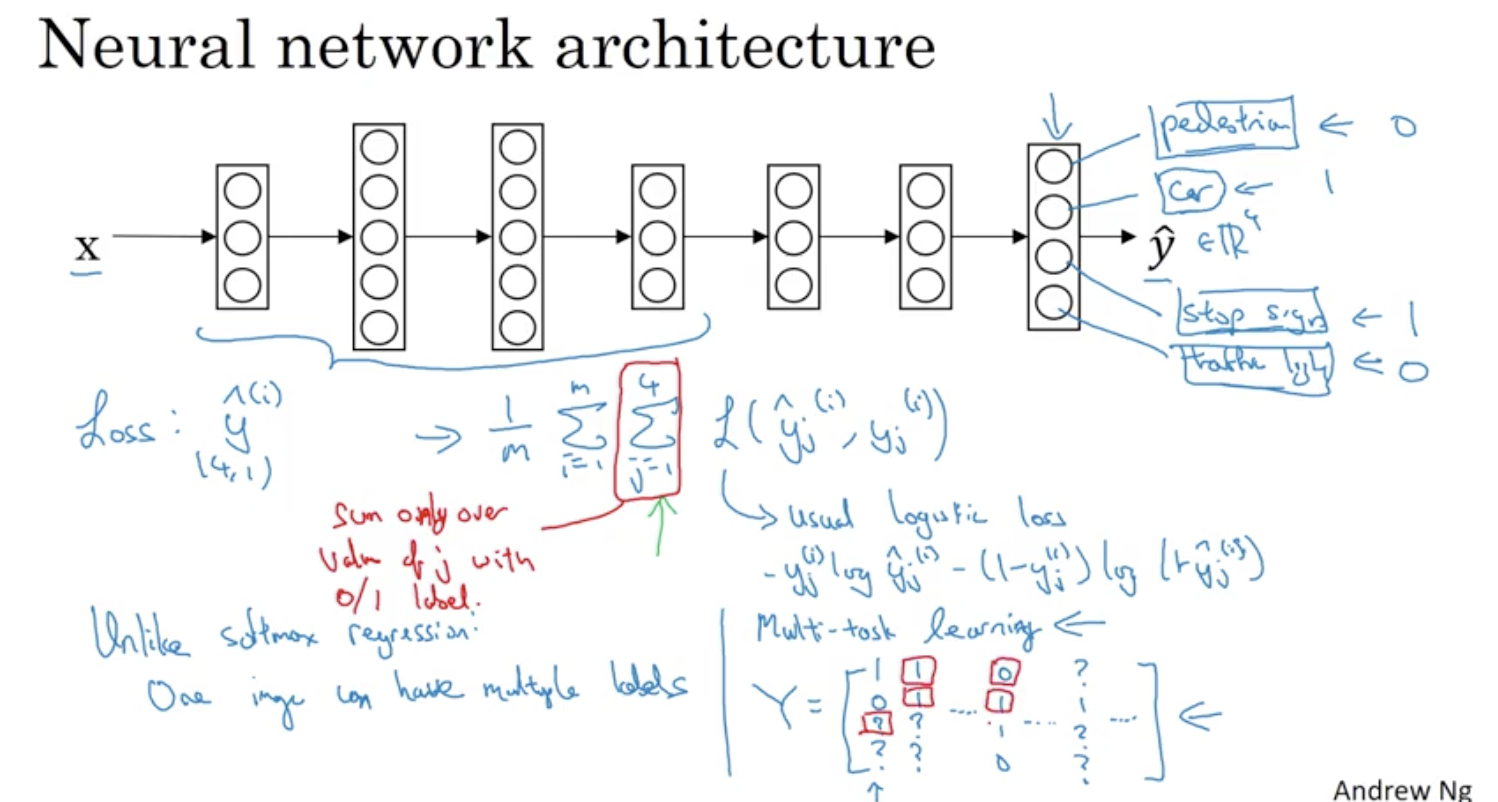 Neural network architecture
pedestrian ← 0
car ← 1
x
ŷ ∈ ℝ⁴
stop sign ← 1
traffic light ← 0
Loss: ŷ^(i) → 1/m ∑_{i=1}^{m} ∑_{j=1}^{4} ℒ(ŷ_j^(i), y_j^(i))
(4,1)
sum only over
value of j with
0/1 label.
→ usual logistic loss
- y_j^(i) log ŷ_j^(i) - (1-y_j^(i)) log (1-ŷ_j^(i))
Unlike softmax regression:
One image can have multiple labels
Multi-task learning ←
Y = [ 1 1 0 ?
0 1 .... 1 1
? ? 1 .... ? .... ] ←
? ? 0 ?
Andrew Ng